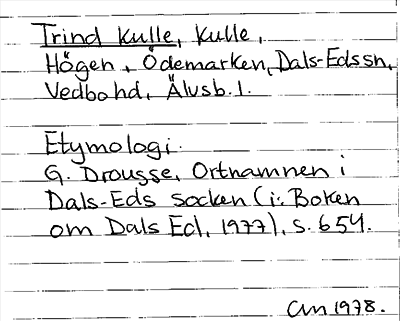 Trind kulle, kulle,
Högen, Ödemarken, Dals-Eds sn,
Vedbo hd, Älvsb. l.
Etymologi.
G. Drougge, Ortnamnen i
Dals-Eds socken (i: Boken
om Dals Ed, 1977), s. 654.
AM 1978.